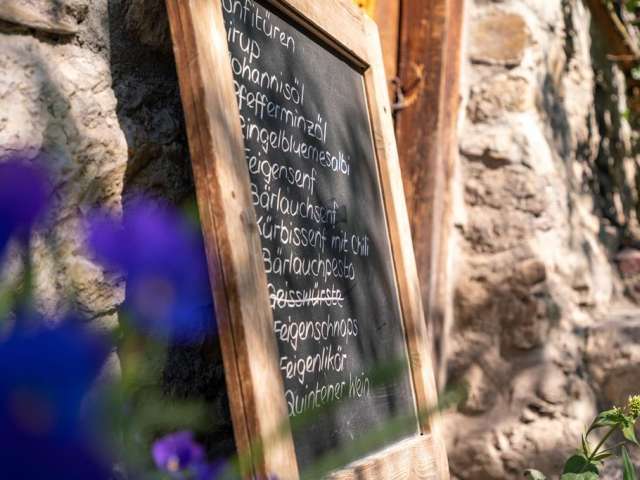 Konfitüren
Sirup
Johannisöl
Pfefferminzöl
Ringelblumesalbi
Feigensenf
Bärlauchsenf
Kürbissenf mit Chili
Bärlauchpesto
Geisswürste
Feigenschnaps
Feigenlikör
Quintener Wein